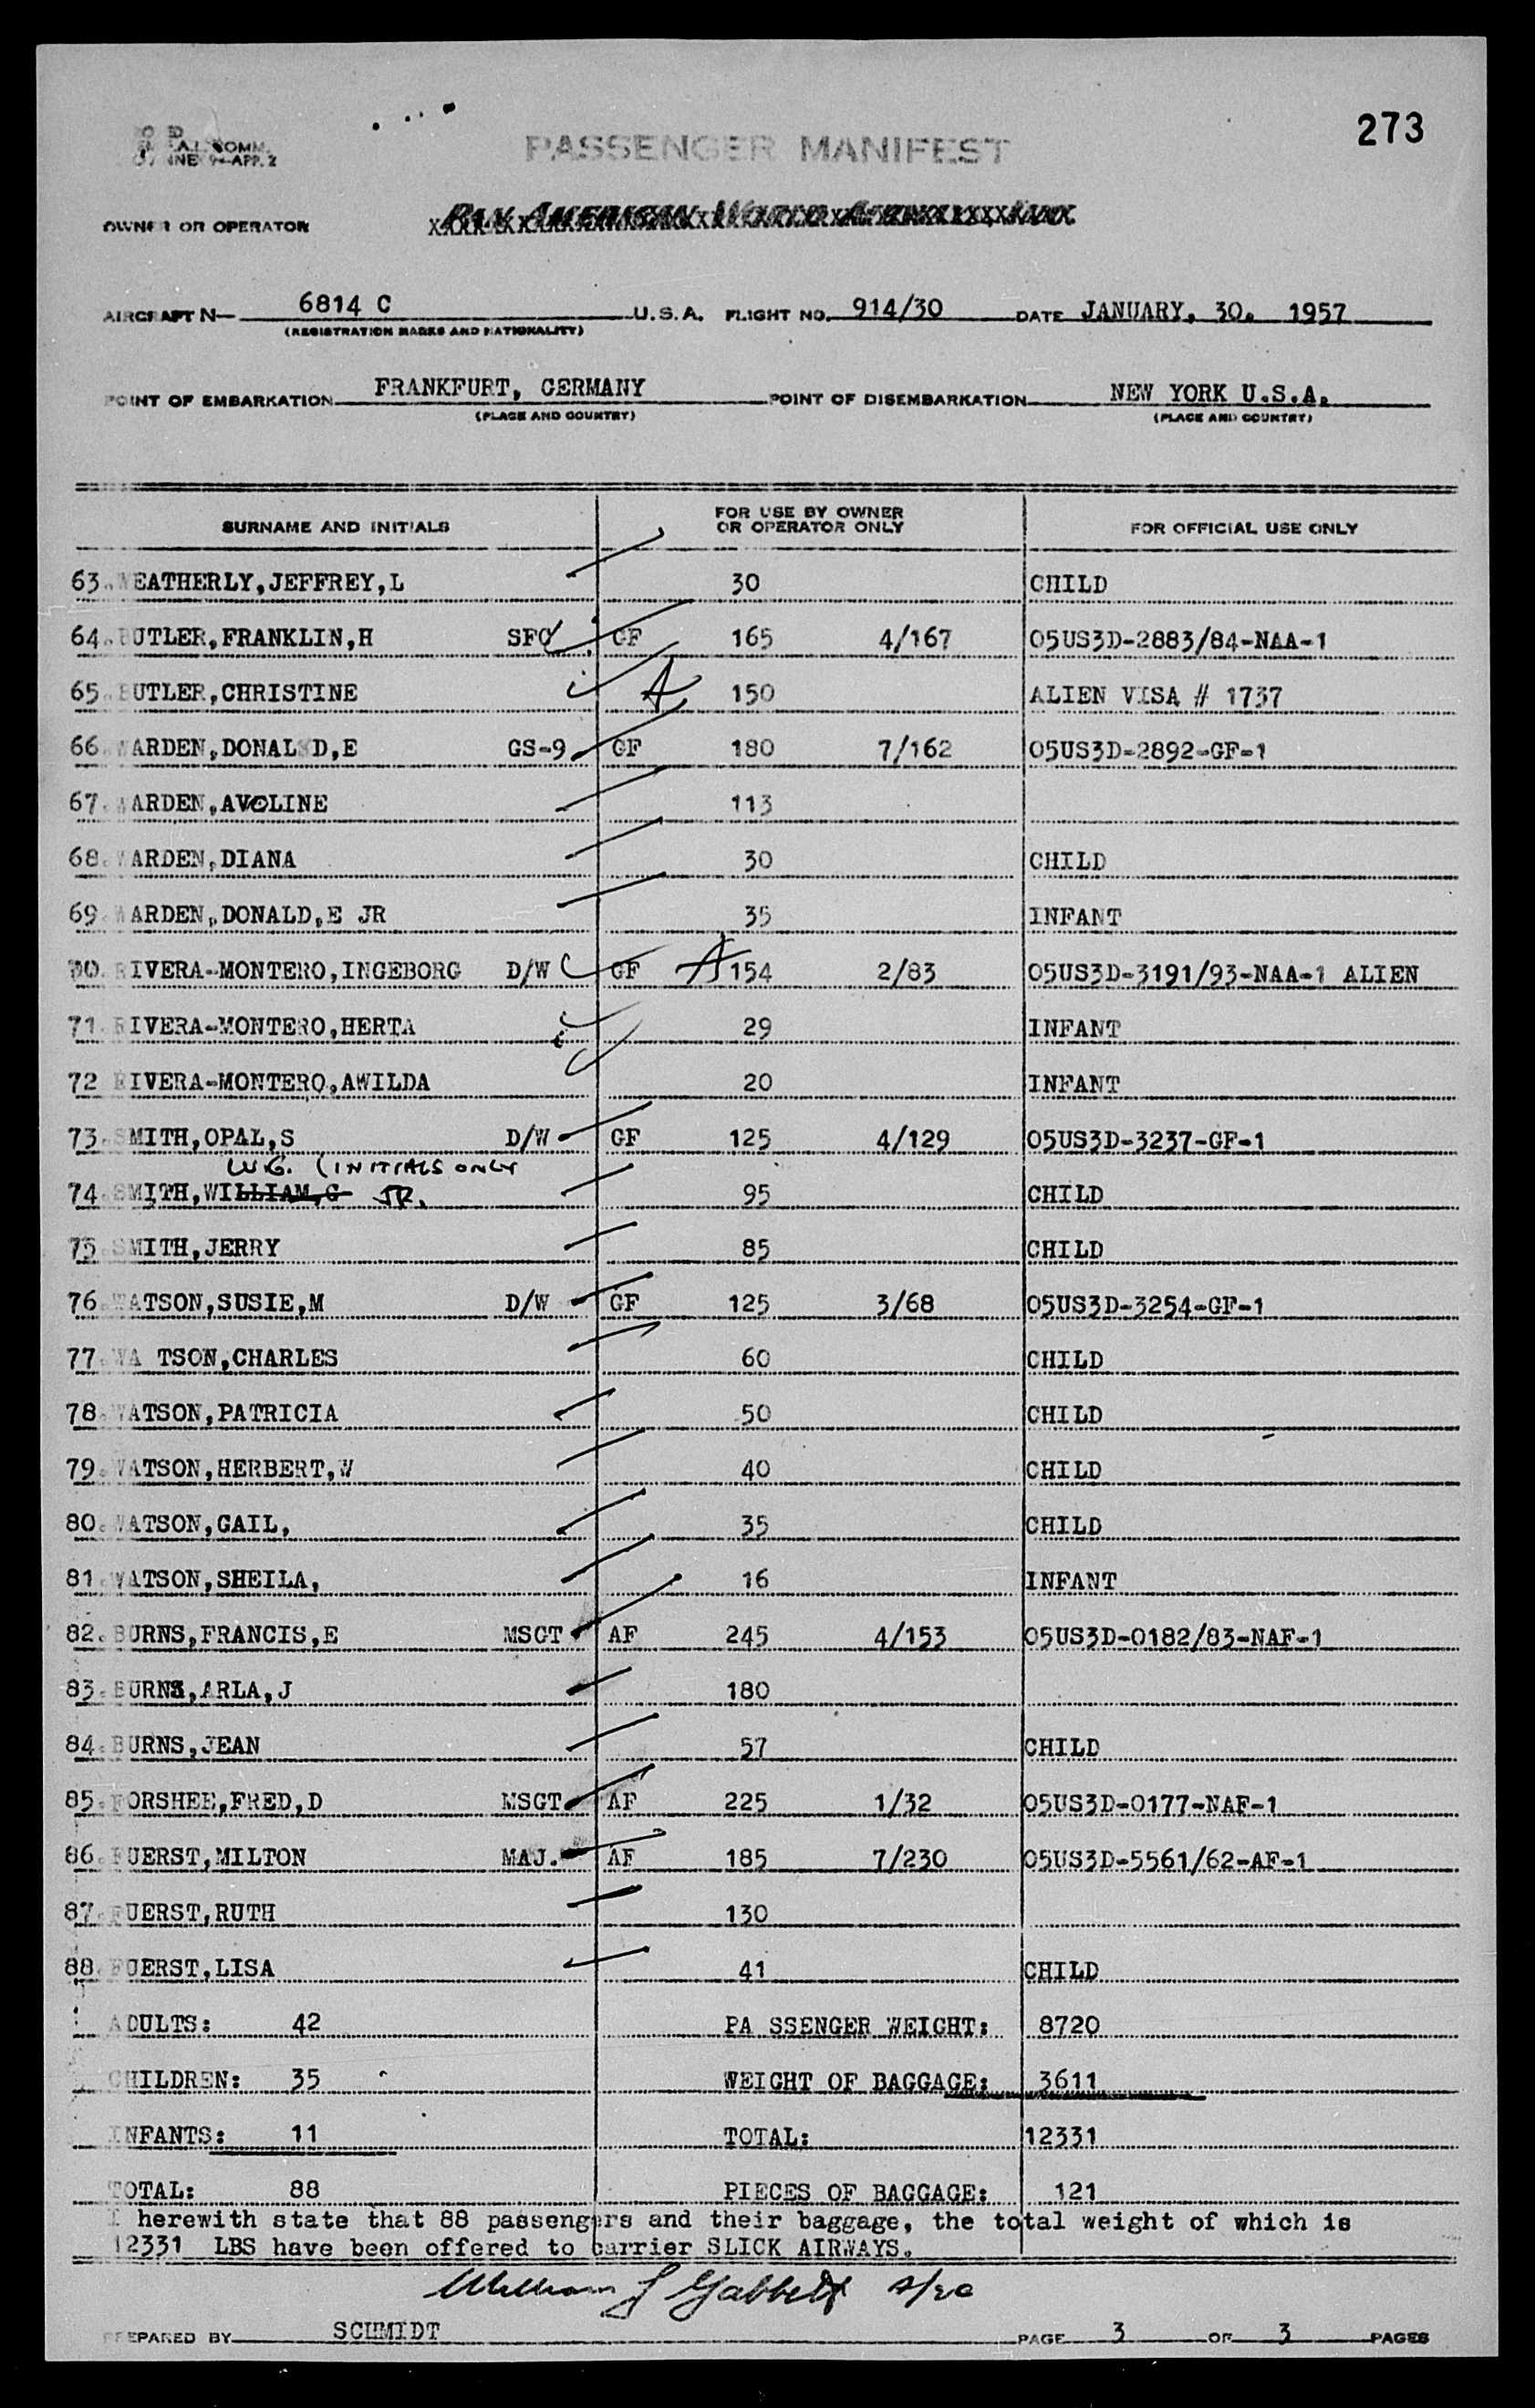 273
PASSENGER MANIFEST
OWNER OR OPERATOR PAN AMERICAN WORLD
AIRCRAFT N— 6814 C U.S.A. FLIGHT NO. 914/30 DATE JANUARY, 30. 1957
(REGISTRATION MARKS AND NATIONALITY)
POINT OF EMBARKATION FRANKFURT, GERMANY POINT OF DISEMBARKATION NEW YORK U.S.A.
(PLACE AND COUNTRY) (PLACE AND COUNTRY)
SURNAME AND INITIALS FOR USE BY OWNER OR OPERATOR ONLY FOR OFFICIAL USE ONLY
63. WEATHERLY,JEFFREY,L 30 CHILD
64. BUTLER,FRANKLIN,H SFC GF 165 4/167 05US3D-2883/84-NAA-1
65. BUTLER,CHRISTINE A 150 ALIEN VISA # 1737
66. WARDEN,DONALD,E GS-9 GF 180 7/162 05US3D-2892-GF-1
67. WARDEN,AVOLINE 113
68. WARDEN,DIANA 30 CHILD
69. WARDEN,DONALD,E JR 35 INFANT
70. RIVERA-MONTERO,INGEBORG D/W GF A 154 2/83 05US3D-3191/93-NAA-1 ALIEN
71. RIVERA-MONTERO,HERTA 29 INFANT
72 RIVERA-MONTERO,AWILDA 20 INFANT
73. SMITH,OPAL,S D/W GF 125 4/129 05US3D-3237-GF-1
W.G. (INITIALS ONLY
74. SMITH,WILLIAM,G JR. 95 CHILD
75. SMITH,JERRY 85 CHILD
76. WATSON,SUSIE,M D/W GF 125 3/68 05US3D-3254-GF-1
77. WA TSON,CHARLES 60 CHILD
78. WATSON,PATRICIA 50 CHILD
79. WATSON,HERBERT,W 40 CHILD
80. WATSON,GAIL, 35 CHILD
81. WATSON,SHEILA, 16 INFANT
82. BURNS,FRANCIS,E MSGT AF 245 4/153 05US3D-0182/83-NAF-1
83. BURNS,ARLA,J 180
84. BURNS,JEAN 57 CHILD
85. FORSHEE,FRED,D MSGT AF 225 1/32 05US3D-0177-NAF-1
86. FUERST,MILTON MAJ. AF 185 7/230 05US3D-5561/62-AF-1
87. FUERST,RUTH 130
88. FUERST,LISA 41 CHILD
ADULTS: 42 PA SSENGER WEIGHT: 8720
CHILDREN: 35 WEIGHT OF BAGGAGE: 3611
INFANTS: 11 TOTAL: 12331
TOTAL: 88 PIECES OF BAGGAGE: 121
I herewith state that 88 passengers and their baggage, the total weight of which is
12331 LBS have been offered to carrier SLICK AIRWAYS.
William
PREPARED BY SCHMIDT PAGE 3 OF 3 PAGES